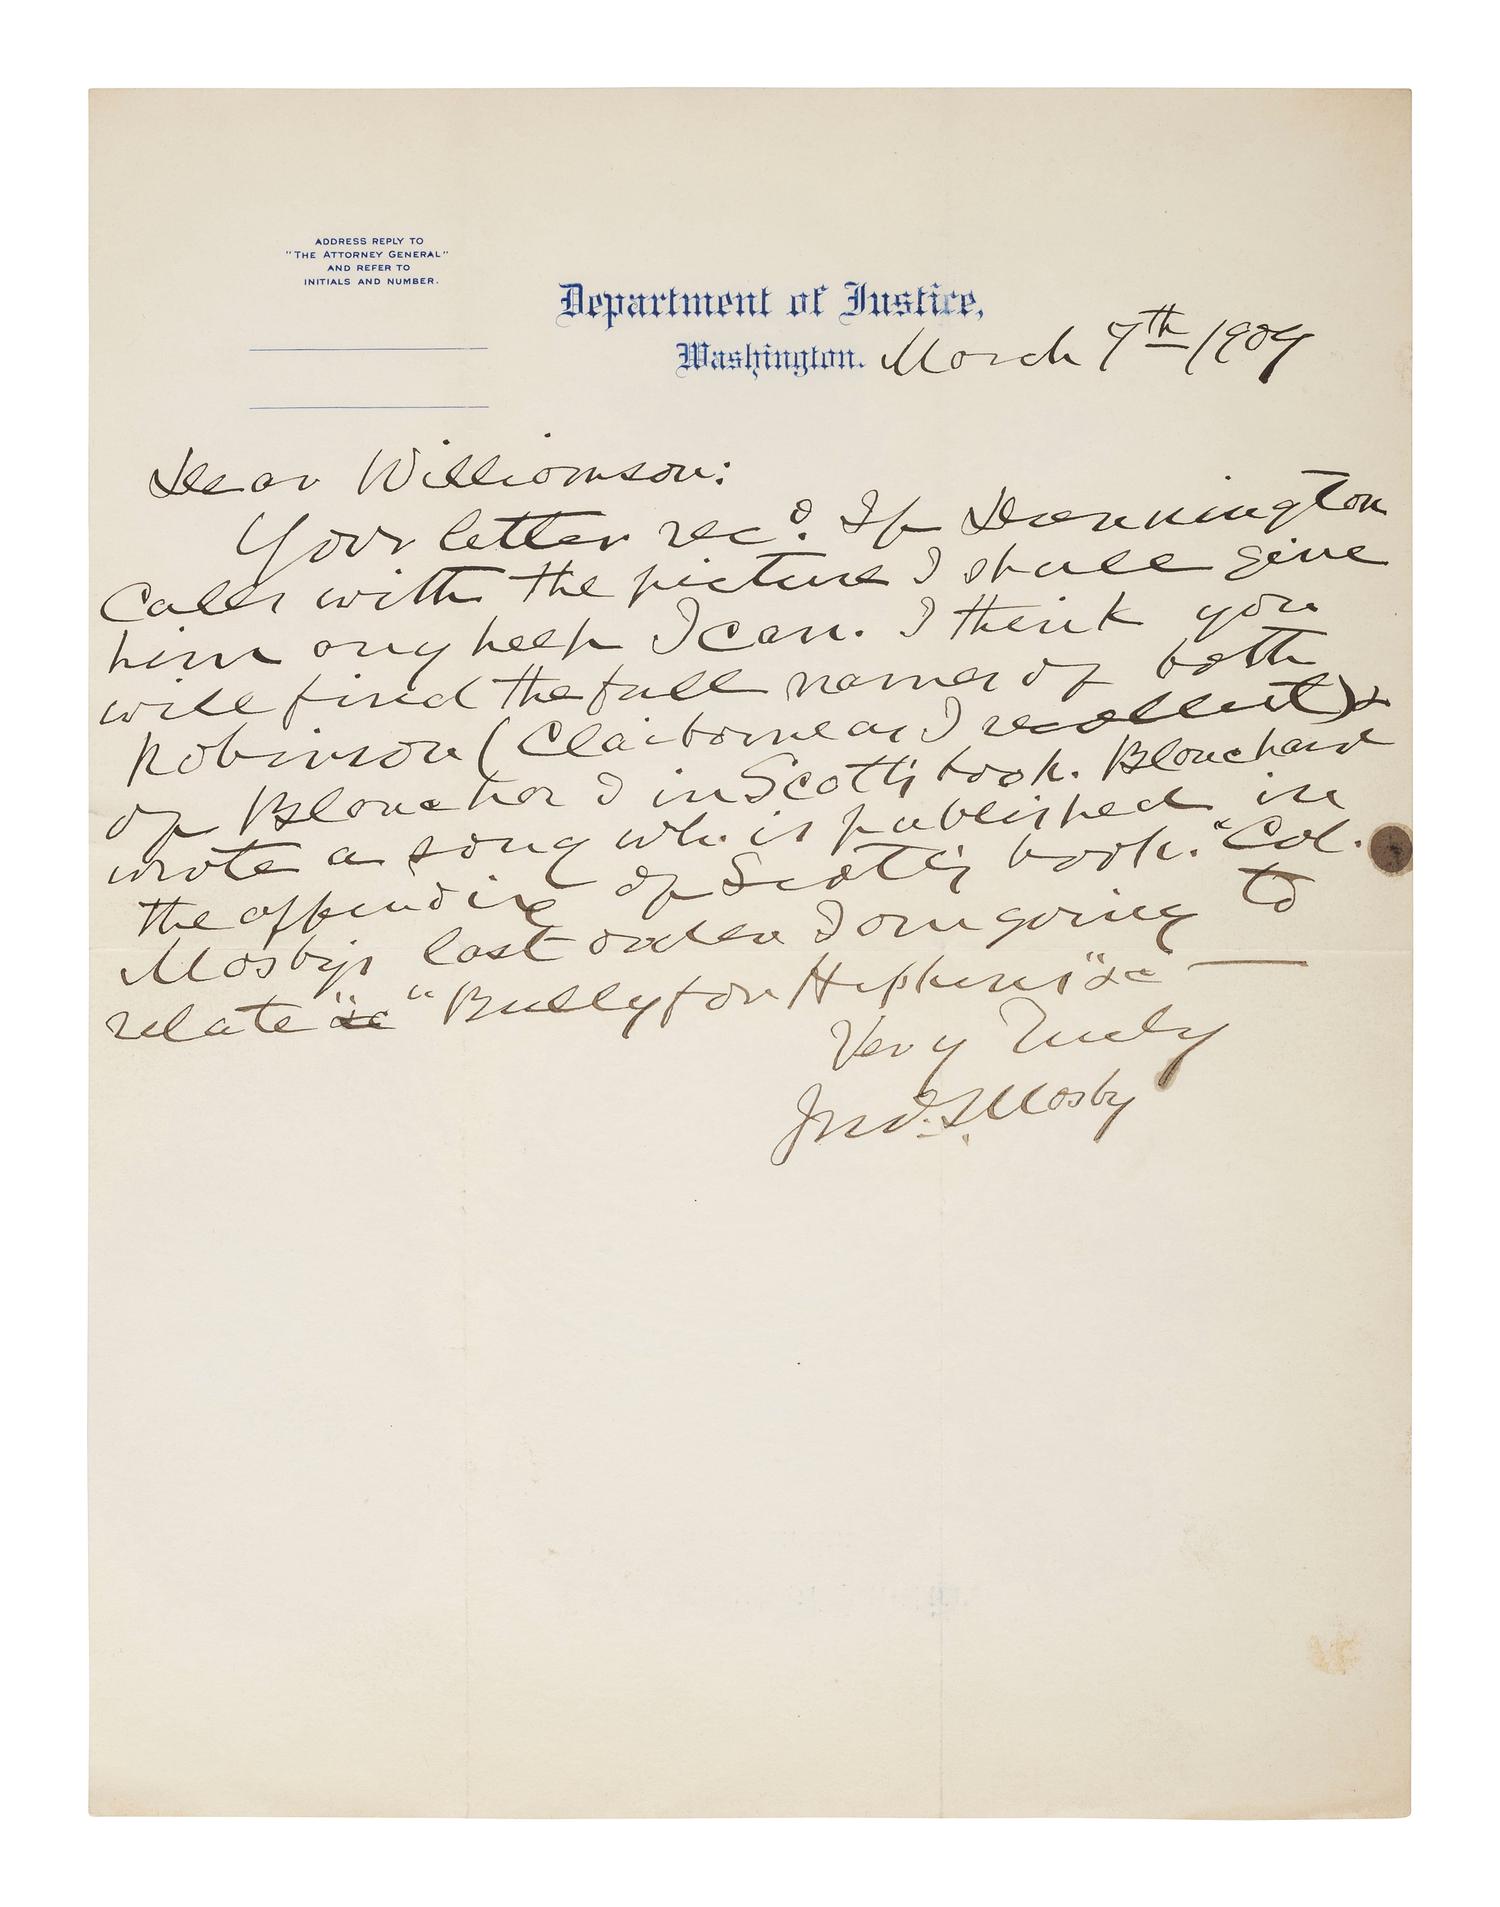 ADDRESS REPLY TO
"THE ATTORNEY GENERAL"
AND REFER TO
INITIALS AND NUMBER.
Department of Justice,
Washington. March 7th 1909
Dear Williamson:
Your letter recd. If Dennington
calls with the picture I shall give
him any help I can. I think you
will find the full names of both
Robinson (Claiborne as I recollect) &
of Blanchard in Scott's book. Blanchard
wrote a song wh. is published in
the appendix of Scott's book. "Col.
Mosby's last order I am going to
relate" &c "Bully for Hipkins" &c —
Very Truly
Jno. S. Mosby